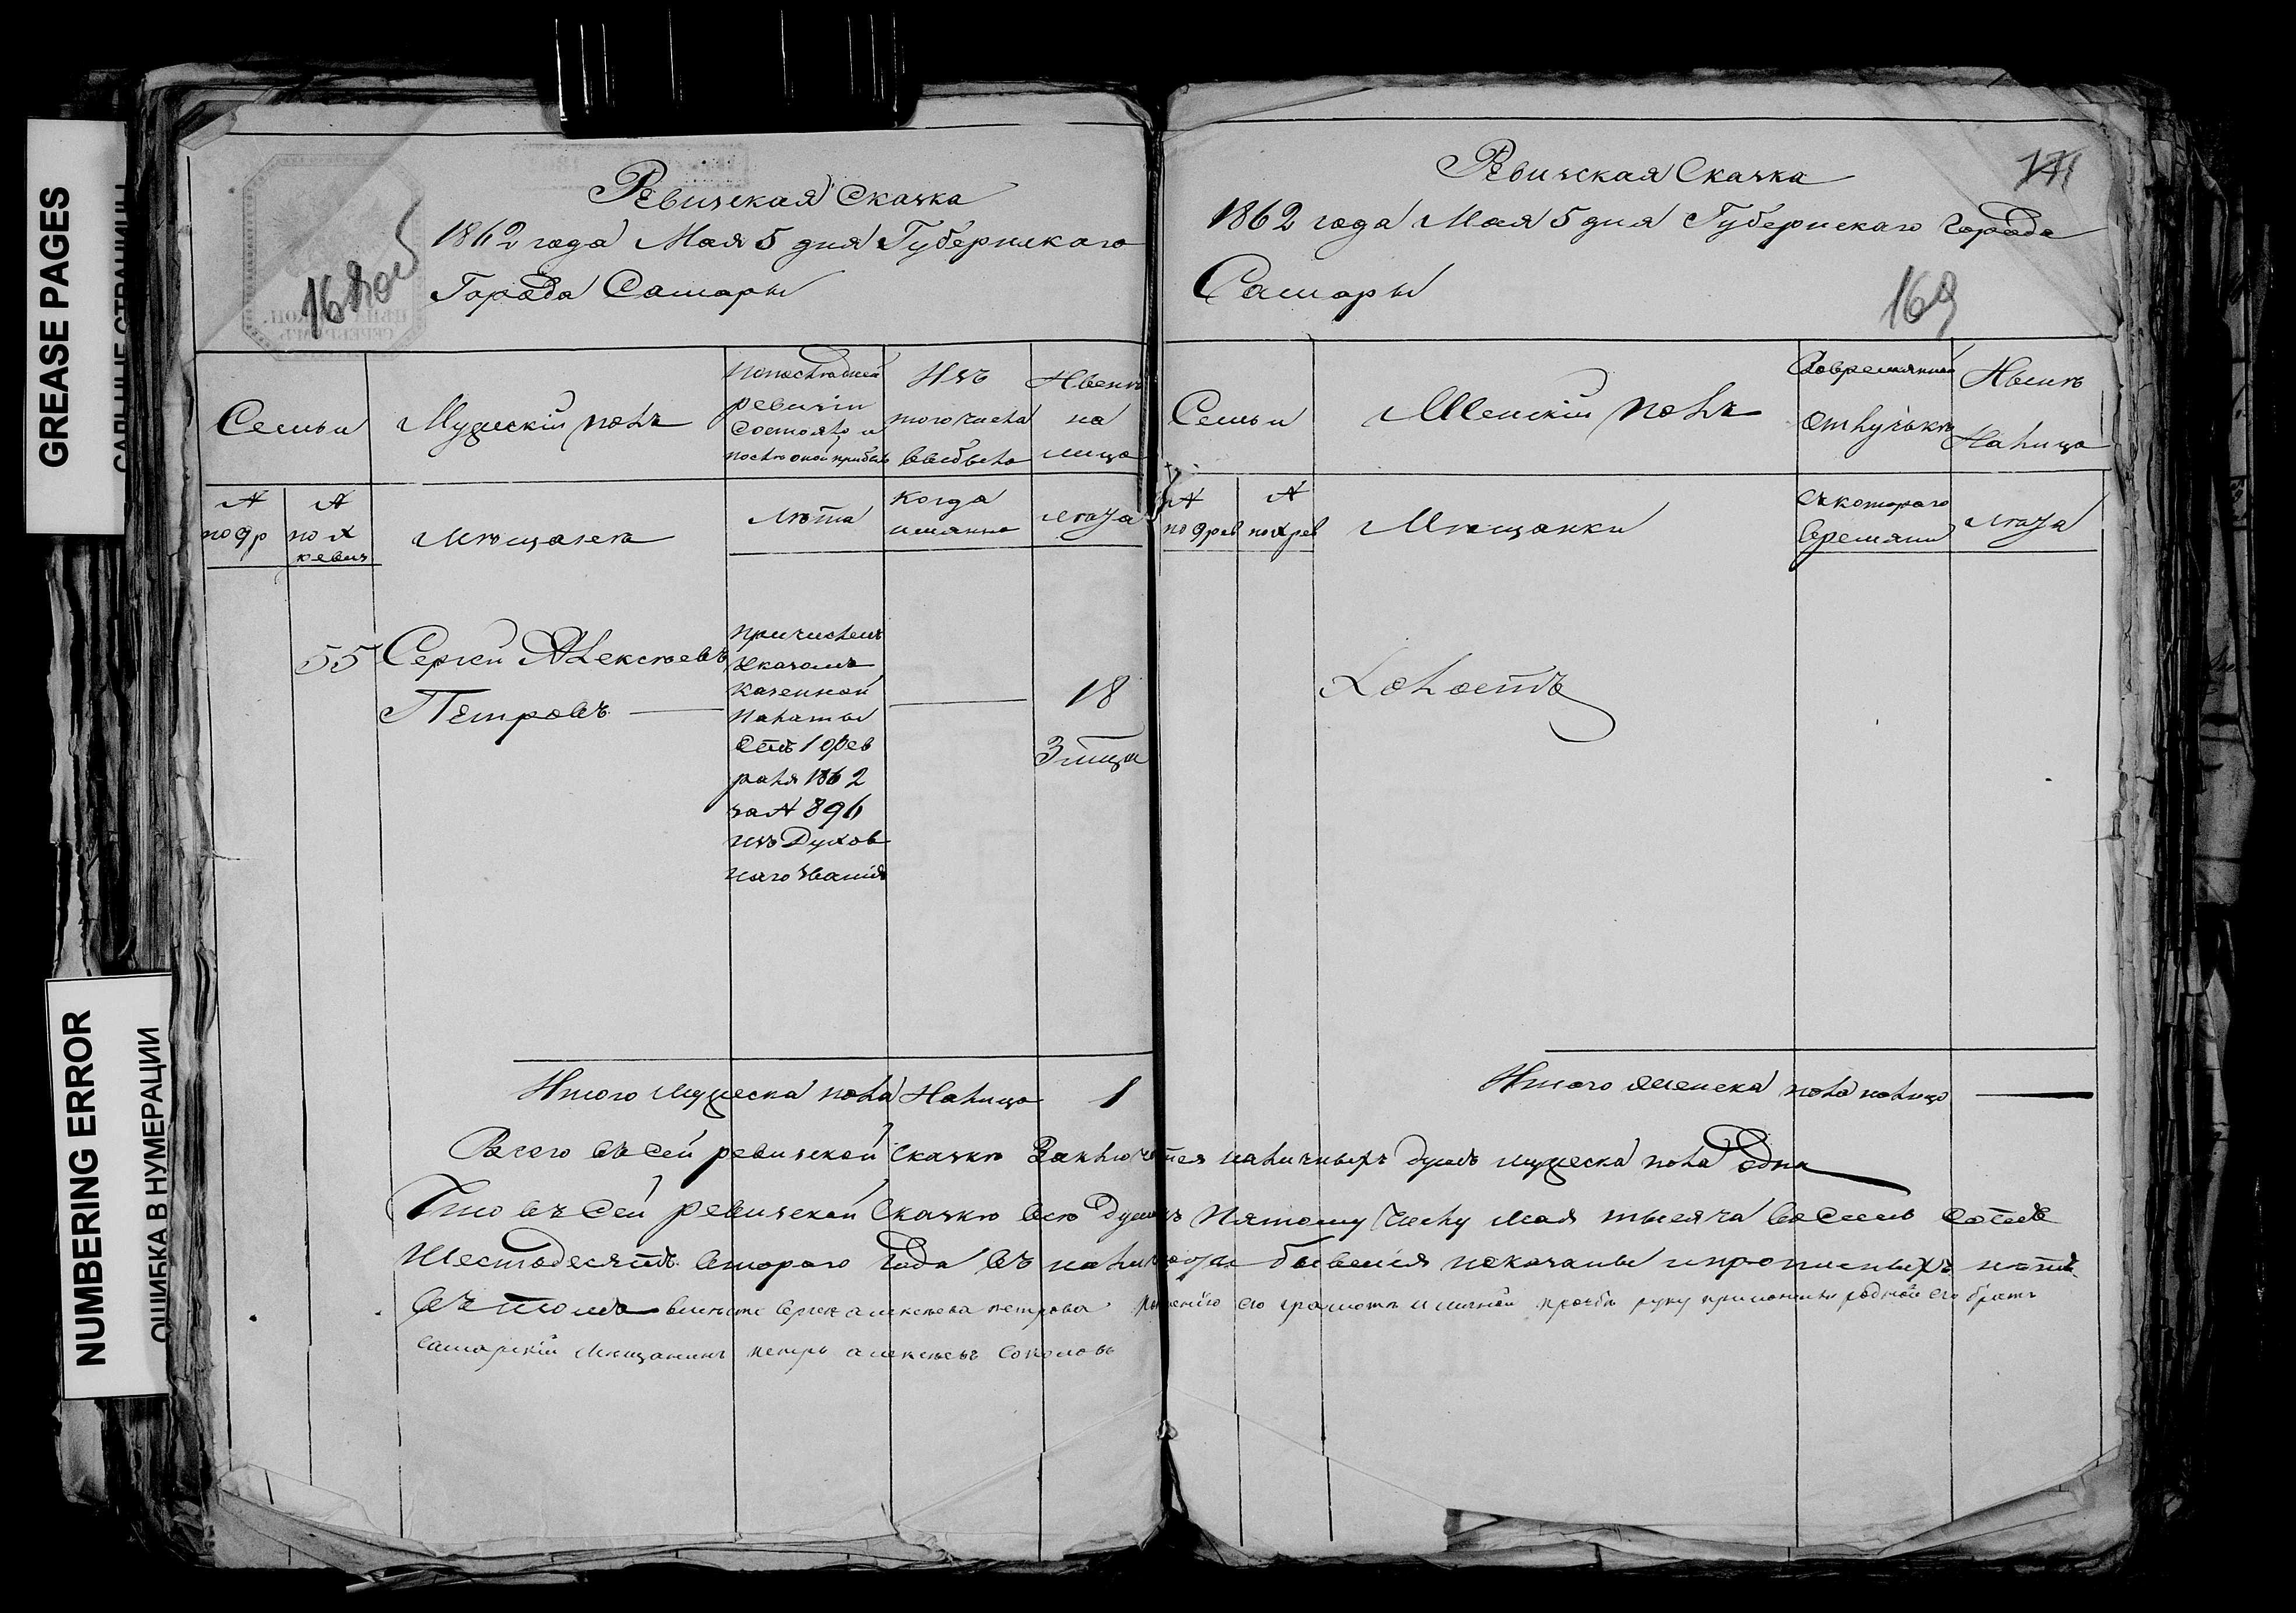 GREASE PAGES
NUMBERING ERROR
ОШИБКА В НУМЕРАЦИИ
168об
Ревизская Сказка
1862 года Мая 5 дня Губернскаго
Города Самары
Семьи
Мужескій полъ
По последней ревизіи состояло и после оной прибыло
Изъ того числа выбыло
Ныне на лицо
№ по 9 р
№ по X ревиз
Мещане
Лета
Когда имянно
Лета
55
Сергей Алексеевъ
Петровъ
18
3 м̃ца
Причисленъ
Указомъ
Казенной
Палаты
отъ 1 Фев
раля 1862
за № 896
изъ Духов
наго званія
Итого мужеска пола На лицо 1
Ревизская Сказка
171
1862 года Мая 5 дня Губернскаго Города
Самары
169
Семьи
Женскій полъ
Во временной отлучке
Ныне На лицо
№ по 9 рев
№ по X рев
Мещанки
Съ котораго времяни
Лета
Холостъ
Итого женска пола на лицо
Всего въ сей ревизской сказке Заключается наличныхъ душъ мужеска пола одна
Что въ сей ревизской сказке все души къ Пятому Числу Мая тысяча восемь сотъ
Шестьдесятъ втораго года въ наличности бывшія показаны и прописныхъ нетъ
въ томъ вместо Сергея алексеева петрова по неименію его грамоте и личной прозьбе руку приложилъ родной его братъ
самарскій мещанинъ петръ алексеевъ Соколовъ